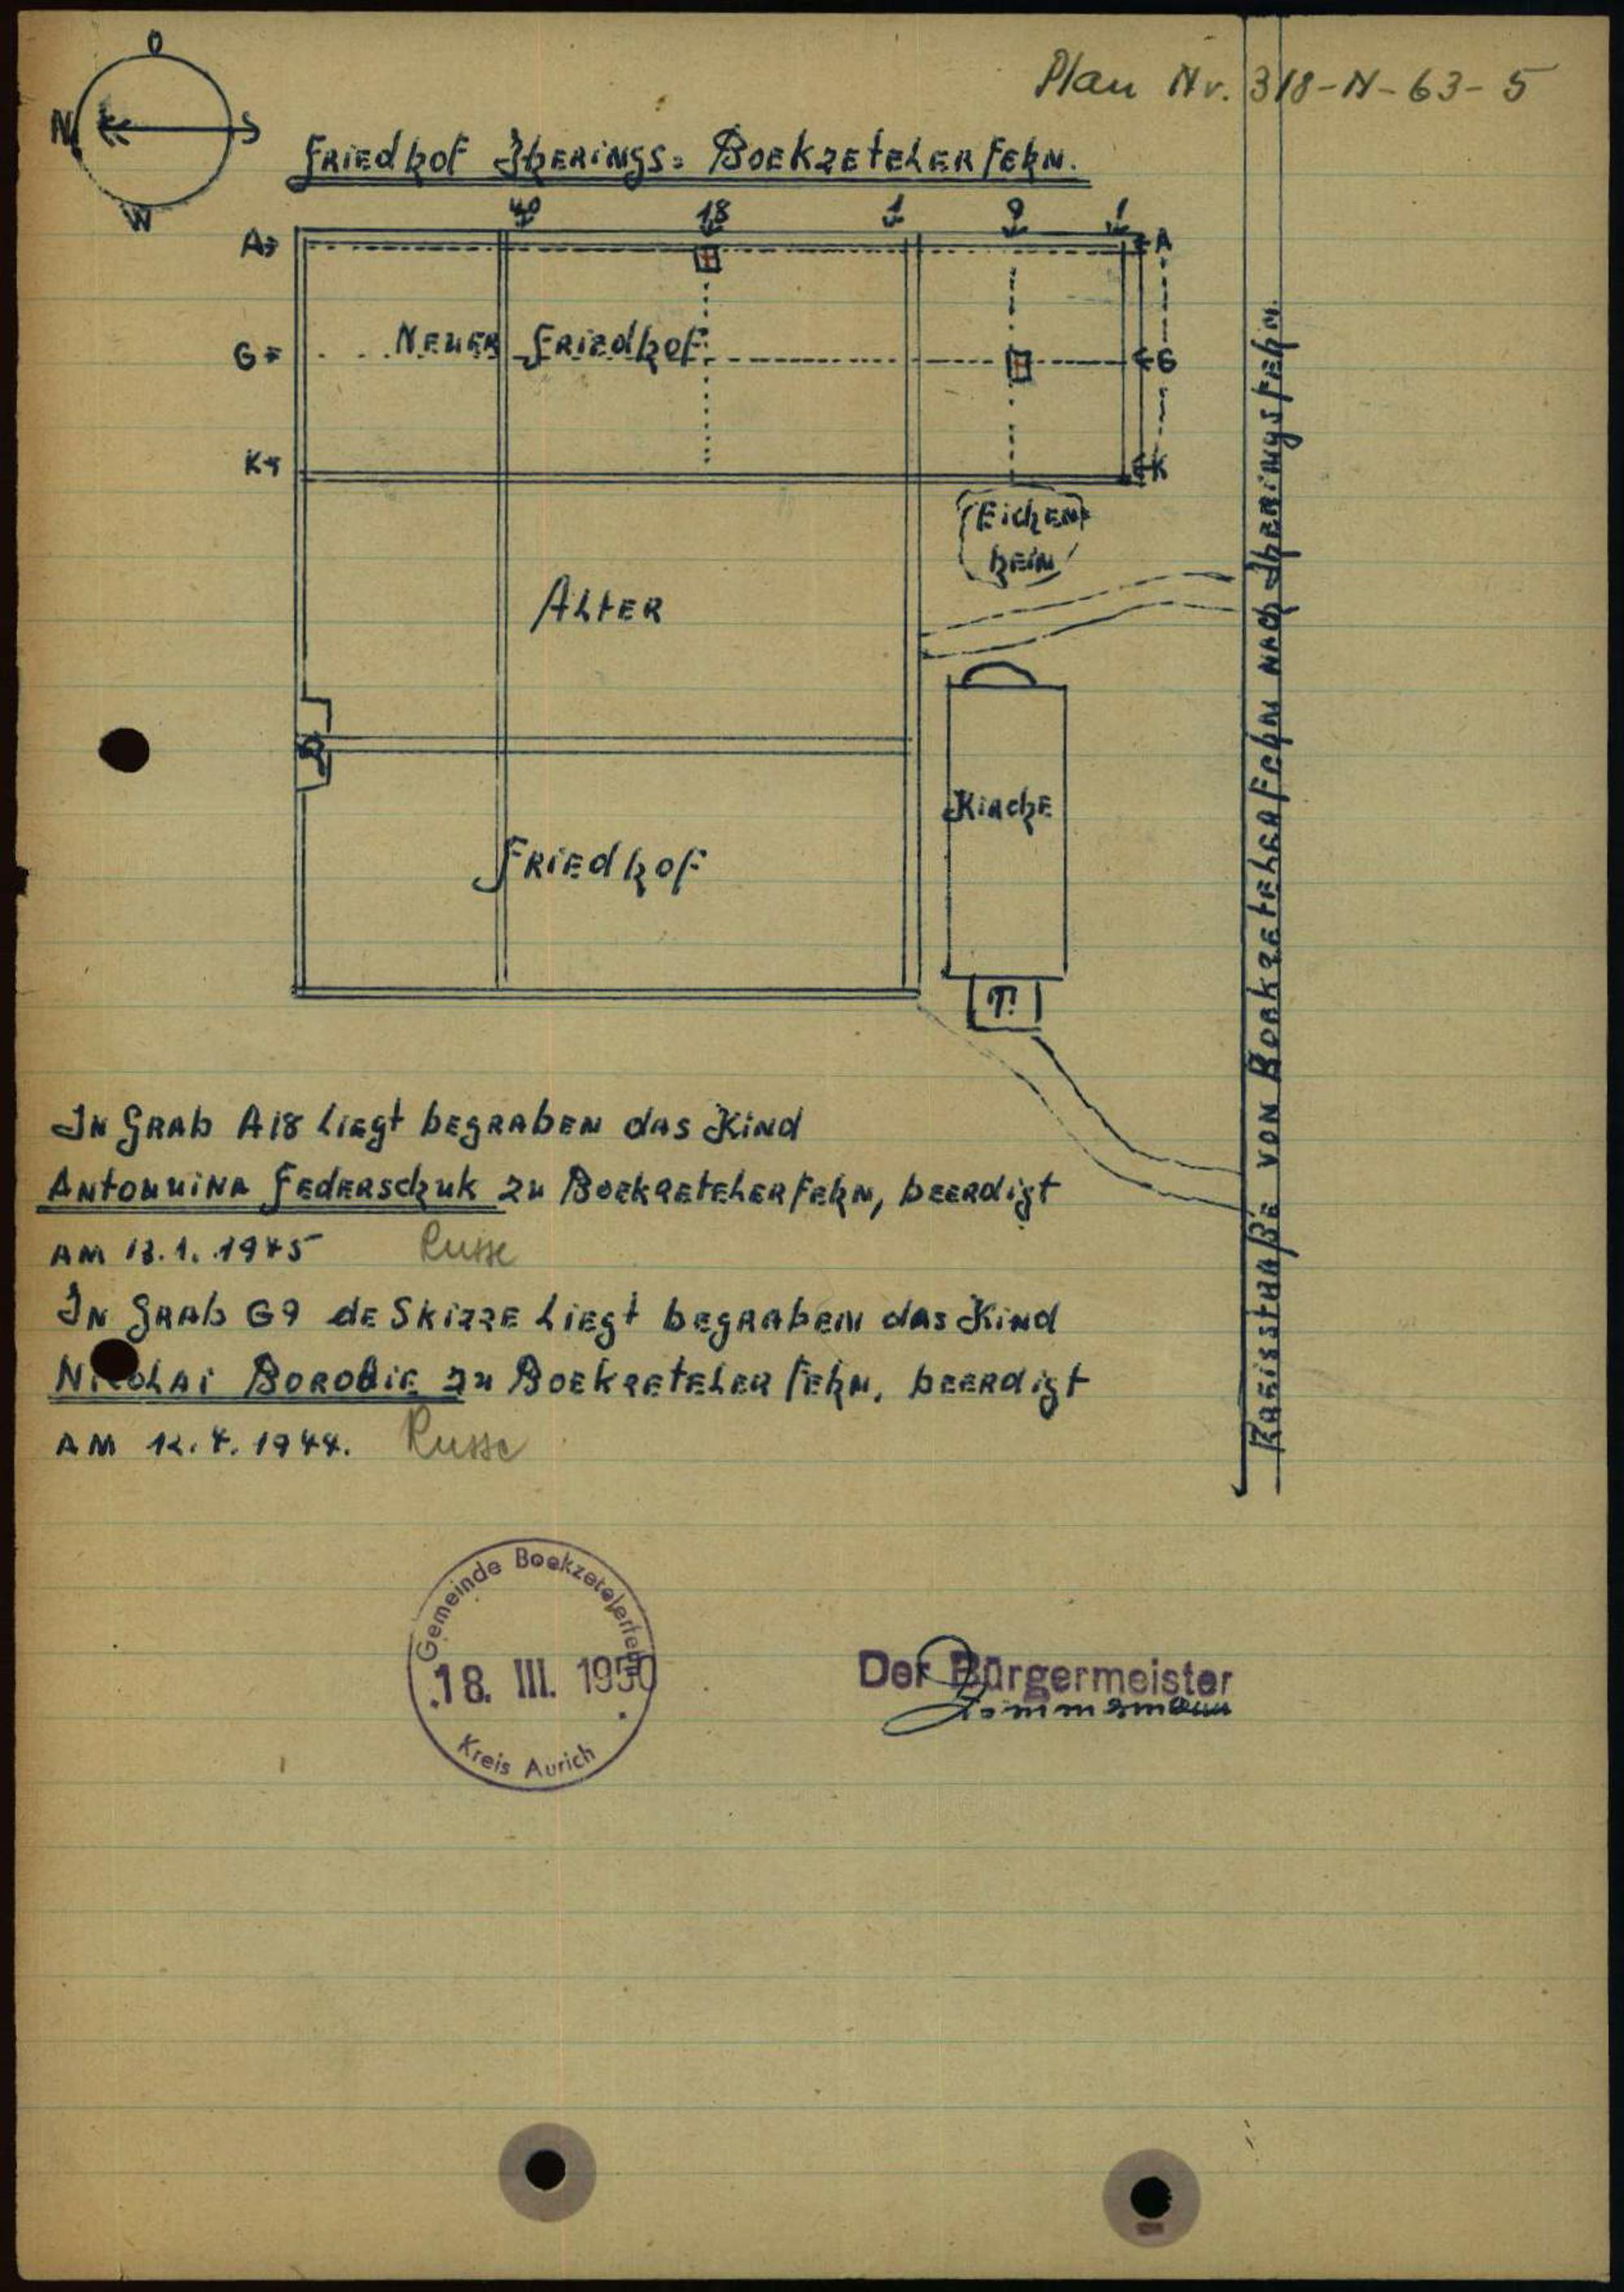 Plan Nr. 318-N-63-5
O
N
S
W
Friedhof Iherings= Boekzetelerfehn.
40 18 1 9 1
A
A
Neuer Friedhof
G
G
K
K
Eichen
hein
Alter
Kirche
Friedhof
T.
Kreisstraße von Boekzetelerfehn nach Iheringsfehn.
In Grab A18 liegt begraben das Kind
Antonnina Federschuk zu Boekzetelerfehn, beerdigt
am 13.1.1945 Russe
In Grab G9 de Skizze liegt begraben das Kind
Nikolai Borodie zu Boekzetelerfehn, beerdigt
am 12.4.1944. Russe
Gemeinde Boekzetelerfehn
18. III. 1950
Kreis Aurich
Der Bürgermeister